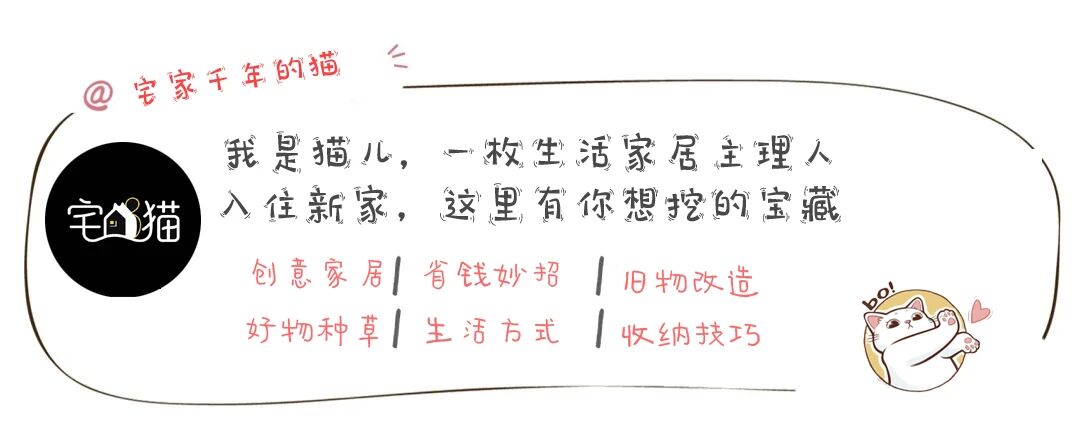 @宅家千年的猫
我是猫儿，一枚生活家居主理人
入住新家，这里有你想挖的宝藏
宅猫
创意家居 | 省钱妙招 | 旧物改造
好物种草 | 生活方式 | 收纳技巧
bo!